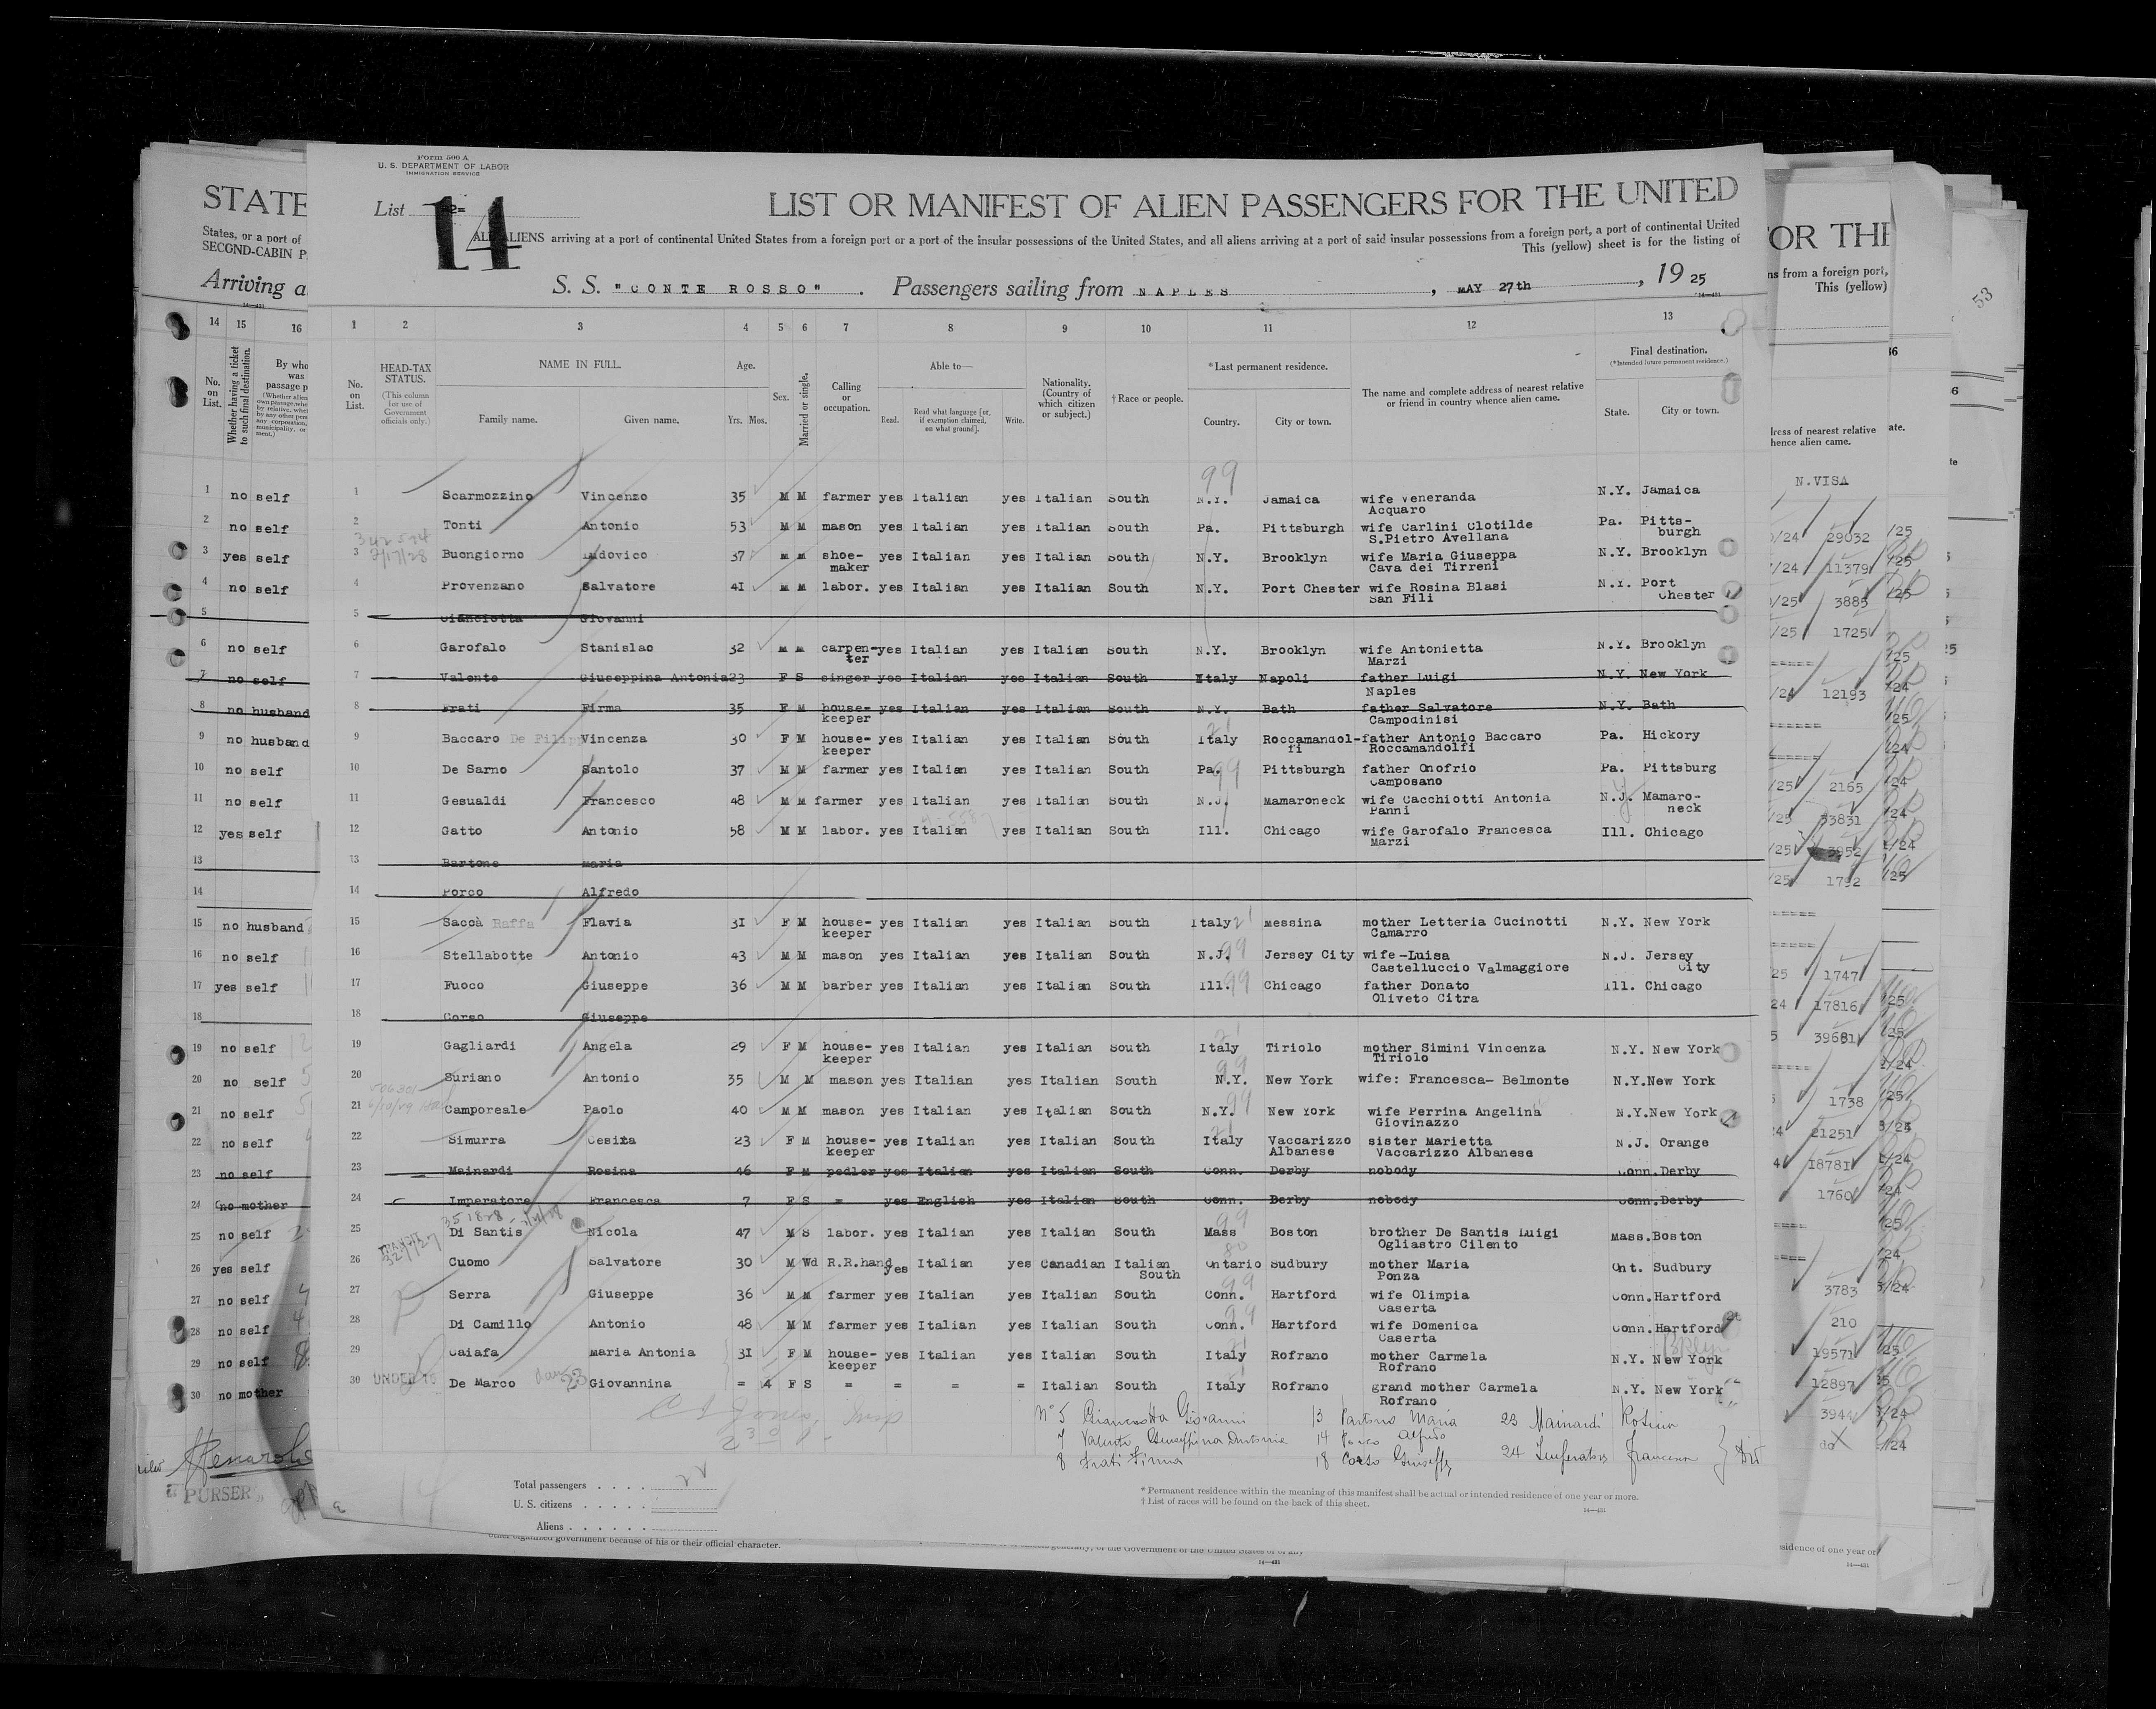 Form 500 A
U. S. DEPARTMENT OF LABOR
IMMIGRATION SERVICE
List 14
LIST OR MANIFEST OF ALIEN PASSENGERS FOR THE UNITED
ALL ALIENS arriving at a port of continental United States from a foreign port or a port of the insular possessions of the United States, and all aliens arriving at a port of said insular possessions from a foreign port, a port of continental United
This (yellow) sheet is for the listing of
S. S. "CONTE ROSSO". Passengers sailing from NAPLES, MAY 27th, 1925
14—431
1 2 3 4 5 6 7 8 9 10 11 12 13
No. on List.
HEAD-TAX STATUS.
(This column for use of Government officials only.)
NAME IN FULL.
Family name. Given name.
Age.
Yrs. Mos.
Sex.
Married or single.
Calling or occupation.
Able to—
Read. Read what language [or, if exemption claimed, on what ground]. Write.
Nationality. (Country of which citizen or subject.)
†Race or people.
*Last permanent residence.
Country. City or town.
The name and complete address of nearest relative or friend in country whence alien came.
Final destination.
(*Intended future permanent residence.)
State. City or town.
99
1 Scarmozzino Vincenzo 35 M M farmer yes Italian yes Italian South N.Y. Jamaica wife Veneranda N.Y. Jamaica
Acquaro
2 Tonti Antonio 53 M M mason yes Italian yes Italian South Pa. Pittsburgh wife Carlini Clotilde Pa. Pitts-
S.Pietro Avellana burgh
3 Buongiorno Ludovico 37 M M shoe- yes Italian yes Italian South N.Y. Brooklyn wife Maria Giuseppa N.Y. Brooklyn
maker Cava dei Tirreni
4 Provenzano Salvatore 41 M M labor. yes Italian yes Italian South N.Y. Port Chester wife Rosina Blasi N.Y. Port
San Fili Chester
5 Cianciotta Giovanni
6 Garofalo Stanislao 32 M M carpen- yes Italian yes Italian South N.Y. Brooklyn wife Antonietta N.Y. Brooklyn
ter Marzi
7 Valente Giuseppina Antonia 23 F S singer yes Italian yes Italian South Italy Napoli father Luigi N.Y. New York
Naples
8 Frati Firma 35 F M house- yes Italian yes Italian South N.Y. Bath father Salvatore N.Y. Bath
keeper Campodinisi
9 Baccaro De Filip Vincenza 30 F M house- yes Italian yes Italian South Italy Roccamandol- father Antonio Baccaro Pa. Hickory
keeper fi Roccamandolfi
10 De Sarno Santolo 37 M M farmer yes Italian yes Italian South Pa. Pittsburgh father Onofrio Pa. Pittsburg
Camposano
11 Gesualdi Francesco 48 M M farmer yes Italian yes Italian South N.J. Mamaroneck wife Cacchiotti Antonia N.J. Mamaro-
Panni neck
12 Gatto Antonio 58 M M labor. yes Italian yes Italian South Ill. Chicago wife Garofalo Francesca Ill. Chicago
Marzi
13 Bartone Maria
14 Porco Alfredo
15 Saccà Raffa Flavia 31 F M house- yes Italian yes Italian South Italy Messina mother Letteria Cucinotti N.Y. New York
keeper Camarro
16 Stellabotte Antonio 43 M M mason yes Italian yes Italian South N.J. Jersey City wife-Luisa N.J. Jersey
Castelluccio Valmaggiore City
17 Fuoco Giuseppe 36 M M barber yes Italian yes Italian South Ill. Chicago father Donato Ill. Chicago
Oliveto Citra
18 Corso Giuseppe
19 Gagliardi Angela 29 F M house- yes Italian yes Italian South Italy Tiriolo mother Simini Vincenza N.Y. New York
keeper Tiriolo
20 Suriano Antonio 35 M M mason yes Italian yes Italian South N.Y. New York wife: Francesca- Belmonte N.Y.New York
21 Camporeale Paolo 40 M M mason yes Italian yes Italian South N.Y. New York wife Perrina Angelina N.Y.New York
Giovinazzo
22 Simurra Cesira 23 F M house- yes Italian yes Italian South Italy Vaccarizzo sister Marietta N.J. Orange
keeper Albanese Vaccarizzo Albanese
23 Mainardi Rosina 46 F M pedler yes Italian yes Italian South Conn. Derby nobody Conn.Derby
24 Imperatore Francesca 7 F S = yes English yes Italian South Conn. Derby nobody Conn.Derby
25 Di Santis Nicola 47 M S labor. yes Italian yes Italian South Mass Boston brother De Santis Luigi Mass.Boston
Ogliastro Cilento
26 Cuomo Salvatore 30 M Wd R.R.hand yes Italian yes Canadian Italian Ontario Sudbury mother Maria Ont. Sudbury
South Ponza
27 Serra Giuseppe 36 M M farmer yes Italian yes Italian South Conn. Hartford wife Olimpia Conn.Hartford
Caserta
28 Di Camillo Antonio 48 M M farmer yes Italian yes Italian South Conn. Hartford wife Domenica Conn.Hartford
Caserta
29 Caiafa Maria Antonia 31 F M house- yes Italian yes Italian South Italy Rofrano mother Carmela N.Y. New York
keeper Rofrano
30 UNDER 16 De Marco Giovannina = 4 F S = = = = Italian South Italy Rofrano grand mother Carmela N.Y. New York
Rofrano
N° 5 Cianciotta Giovanni 13 Bartone Maria 23 Mainardi Rosina
7 Valente Giuseppina Antonia 14 Porco Alfredo 24 Imperatore Francesca
8 Frati Firma 18 Corso Giuseppe
Total passengers
U. S. citizens
Aliens
* Permanent residence within the meaning of this manifest shall be actual or intended residence of one year or more.
† List of races will be found on the back of this sheet.
14—431
STATE
States, or a port of
SECOND-CABIN P
Arriving a
14 15 16
No. on List.
Whether having a ticket to such final destination.
By who
was
passage p
1 no self
2 no self
3 yes self
4 no self
5
6 no self
7 no self
8 no husband
9 no husband
10 no self
11 no self
12 yes self
13
14
15 no husband
16 no self
17 yes self
18
19 no self
20 no self
21 no self
22 no self
23 no self
24 no mother
25 no self
26 yes self
27 no self
28 no self
29 no self
30 no mother
PURSER
other organized government because of his or their official character.
OR THE
ns from a foreign port,
This (yellow)
dress of nearest relative
hence alien came.
N.VISA
/24 29032
/24 11379
/25 3885
/25 1725
/24 12193
/25 2165
/25 33831
/25 3952
/25 1792
25 1747
24 17816
5 39681
1738
21251
18781
1760
3783
210
19571
12897
3944
do
sidence of one year or
14—431
53